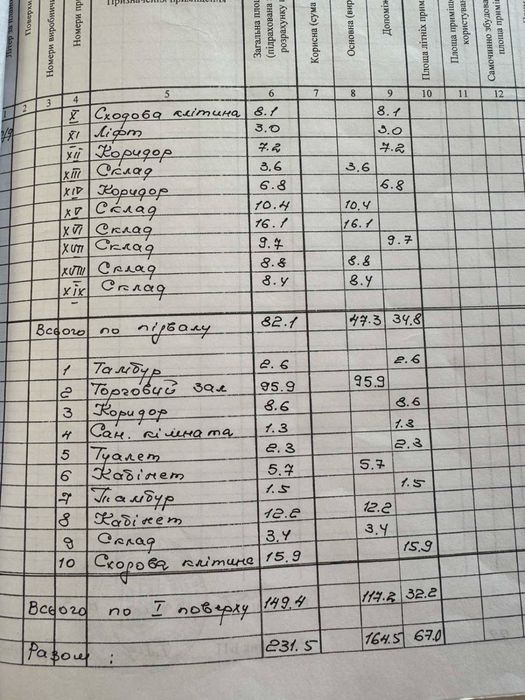 Поверх
Номери виробничих
Номери
Призначення приміщення
Загальна площ
(підрахована
розрахунку
Корисна (сума
Основна (вир
Допоміж
Площа літніх прим
Площа приміще
користуван
Самочинно збудова
площа примі
1 2 3 4 5 6 7 8 9 10 11 12
X Сходова клітина 8.1 8.1
XI Ліфт 3.0 3.0
XII Коридор 7.2 7.2
XIII Склад 3.6 3.6
XIV Коридор 6.8 6.8
XV Склад 10.4 10.4
XVI Склад 16.1 16.1
XVII Склад 9.7 9.7
XVIII Склад 8.8 8.8
XIX Склад 8.4 8.4
Всього по підвалу 82.1 47.3 34.8
1 Тамбур 2.6 2.6
2 Торговий зал 95.9 95.9
3 Коридор 8.6 8.6
4 Сан. кімната 1.3 1.3
5 Туалет 2.3 2.3
6 Кабінет 5.7 5.7
7 Тамбур 1.5 1.5
8 Кабінет 12.2 12.2
9 Склад 3.4 3.4
10 Сходова клітина 15.9 15.9
Всього по I поверху 149.4 117.2 32.2
Разом : 231.5 164.5 67.0